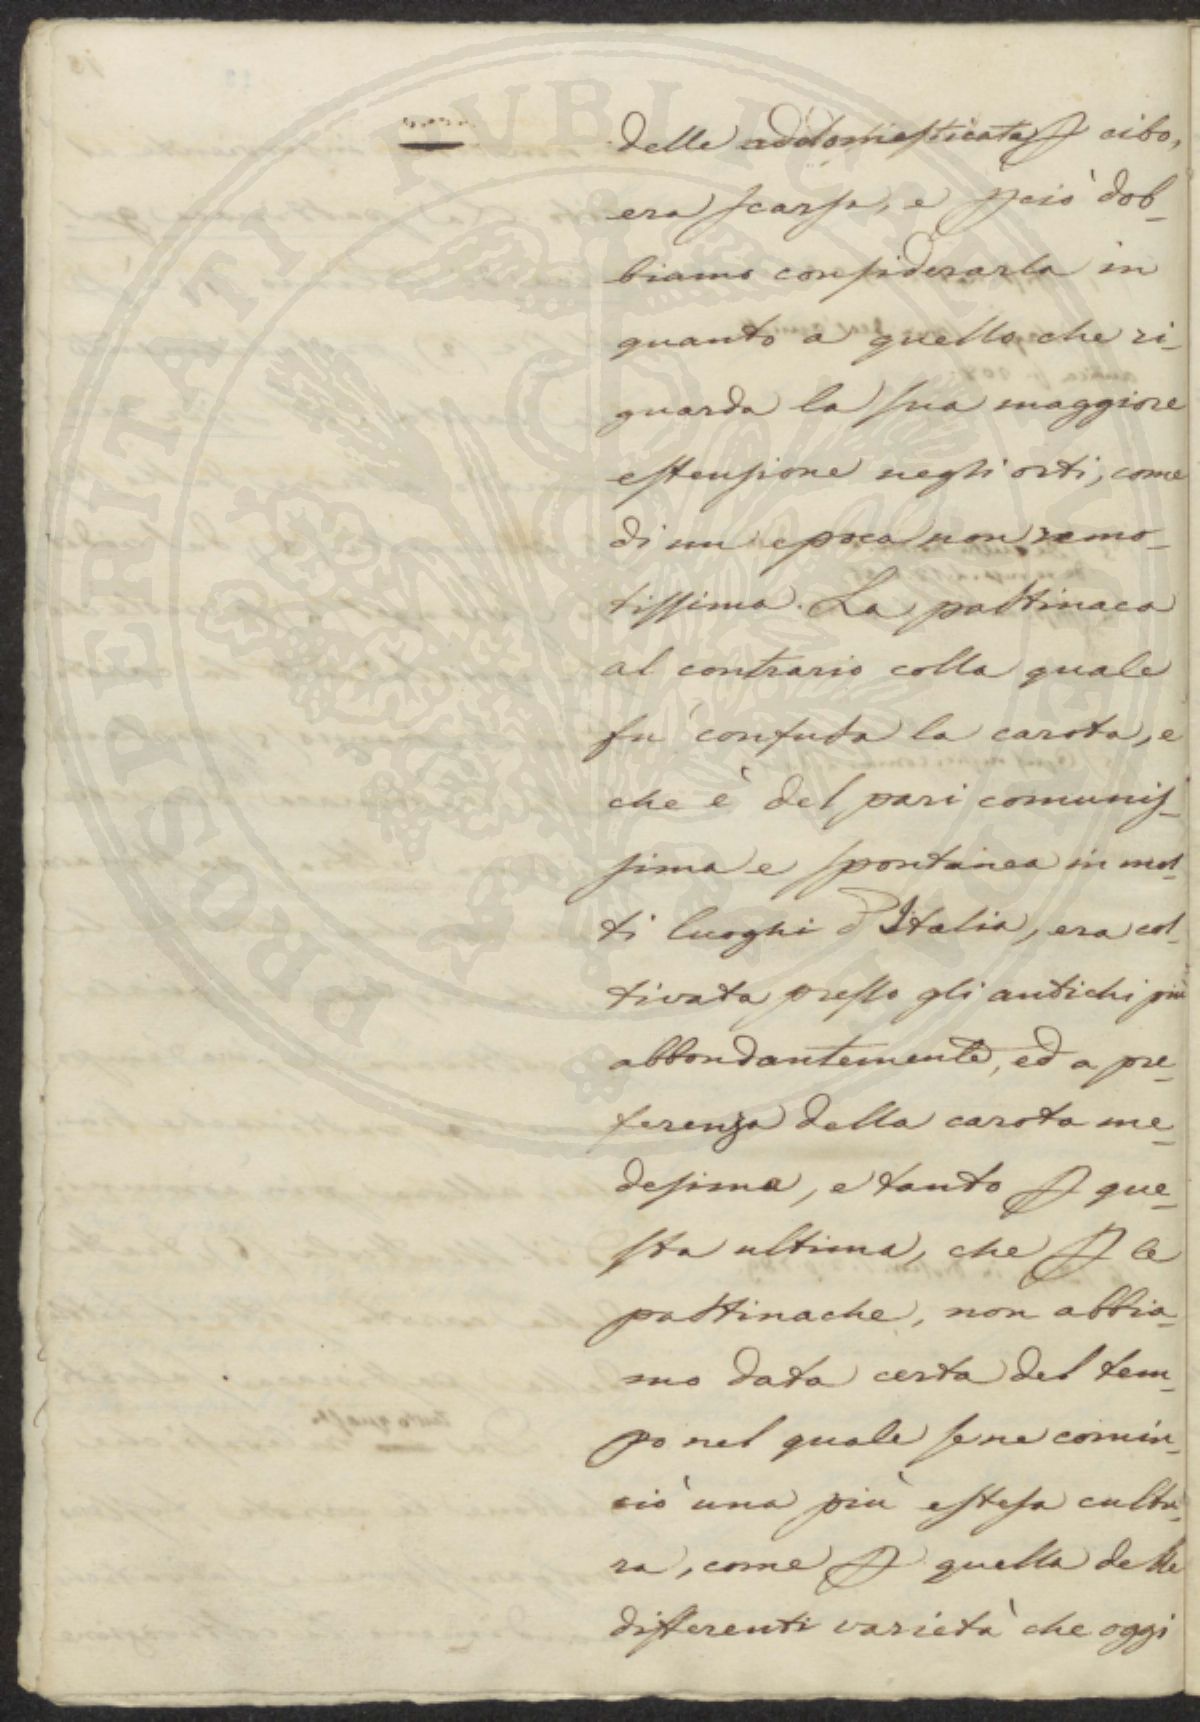 delle addomesticate ꝑ cibo,
era scarsa, e ꝑciò dob-
biamo considerarla in
quanto a quello che ri-
guarda la sua maggiore
estensione negli orti, come
di un epoca non remo-
tissima. La pastinaca
al contrario colla quale
fu confusa la carota, e
che è del pari comunis-
sima e spontanea in mol-
ti luoghi d'Italia, era col-
tivata presso gli antichi più
abbondantemente, ed a pre-
ferenza della carota me-
desima, e tanto ꝑ que-
sta ultima, che ꝑ le
pastinache, non abbia-
mo data certa del tem-
po nel quale se ne comin-
ciò una più estesa cultu-
ra, come ꝑ quella delle
differenti varietà che oggi
PROSPERITATI PUBLICAE AUGENDAE